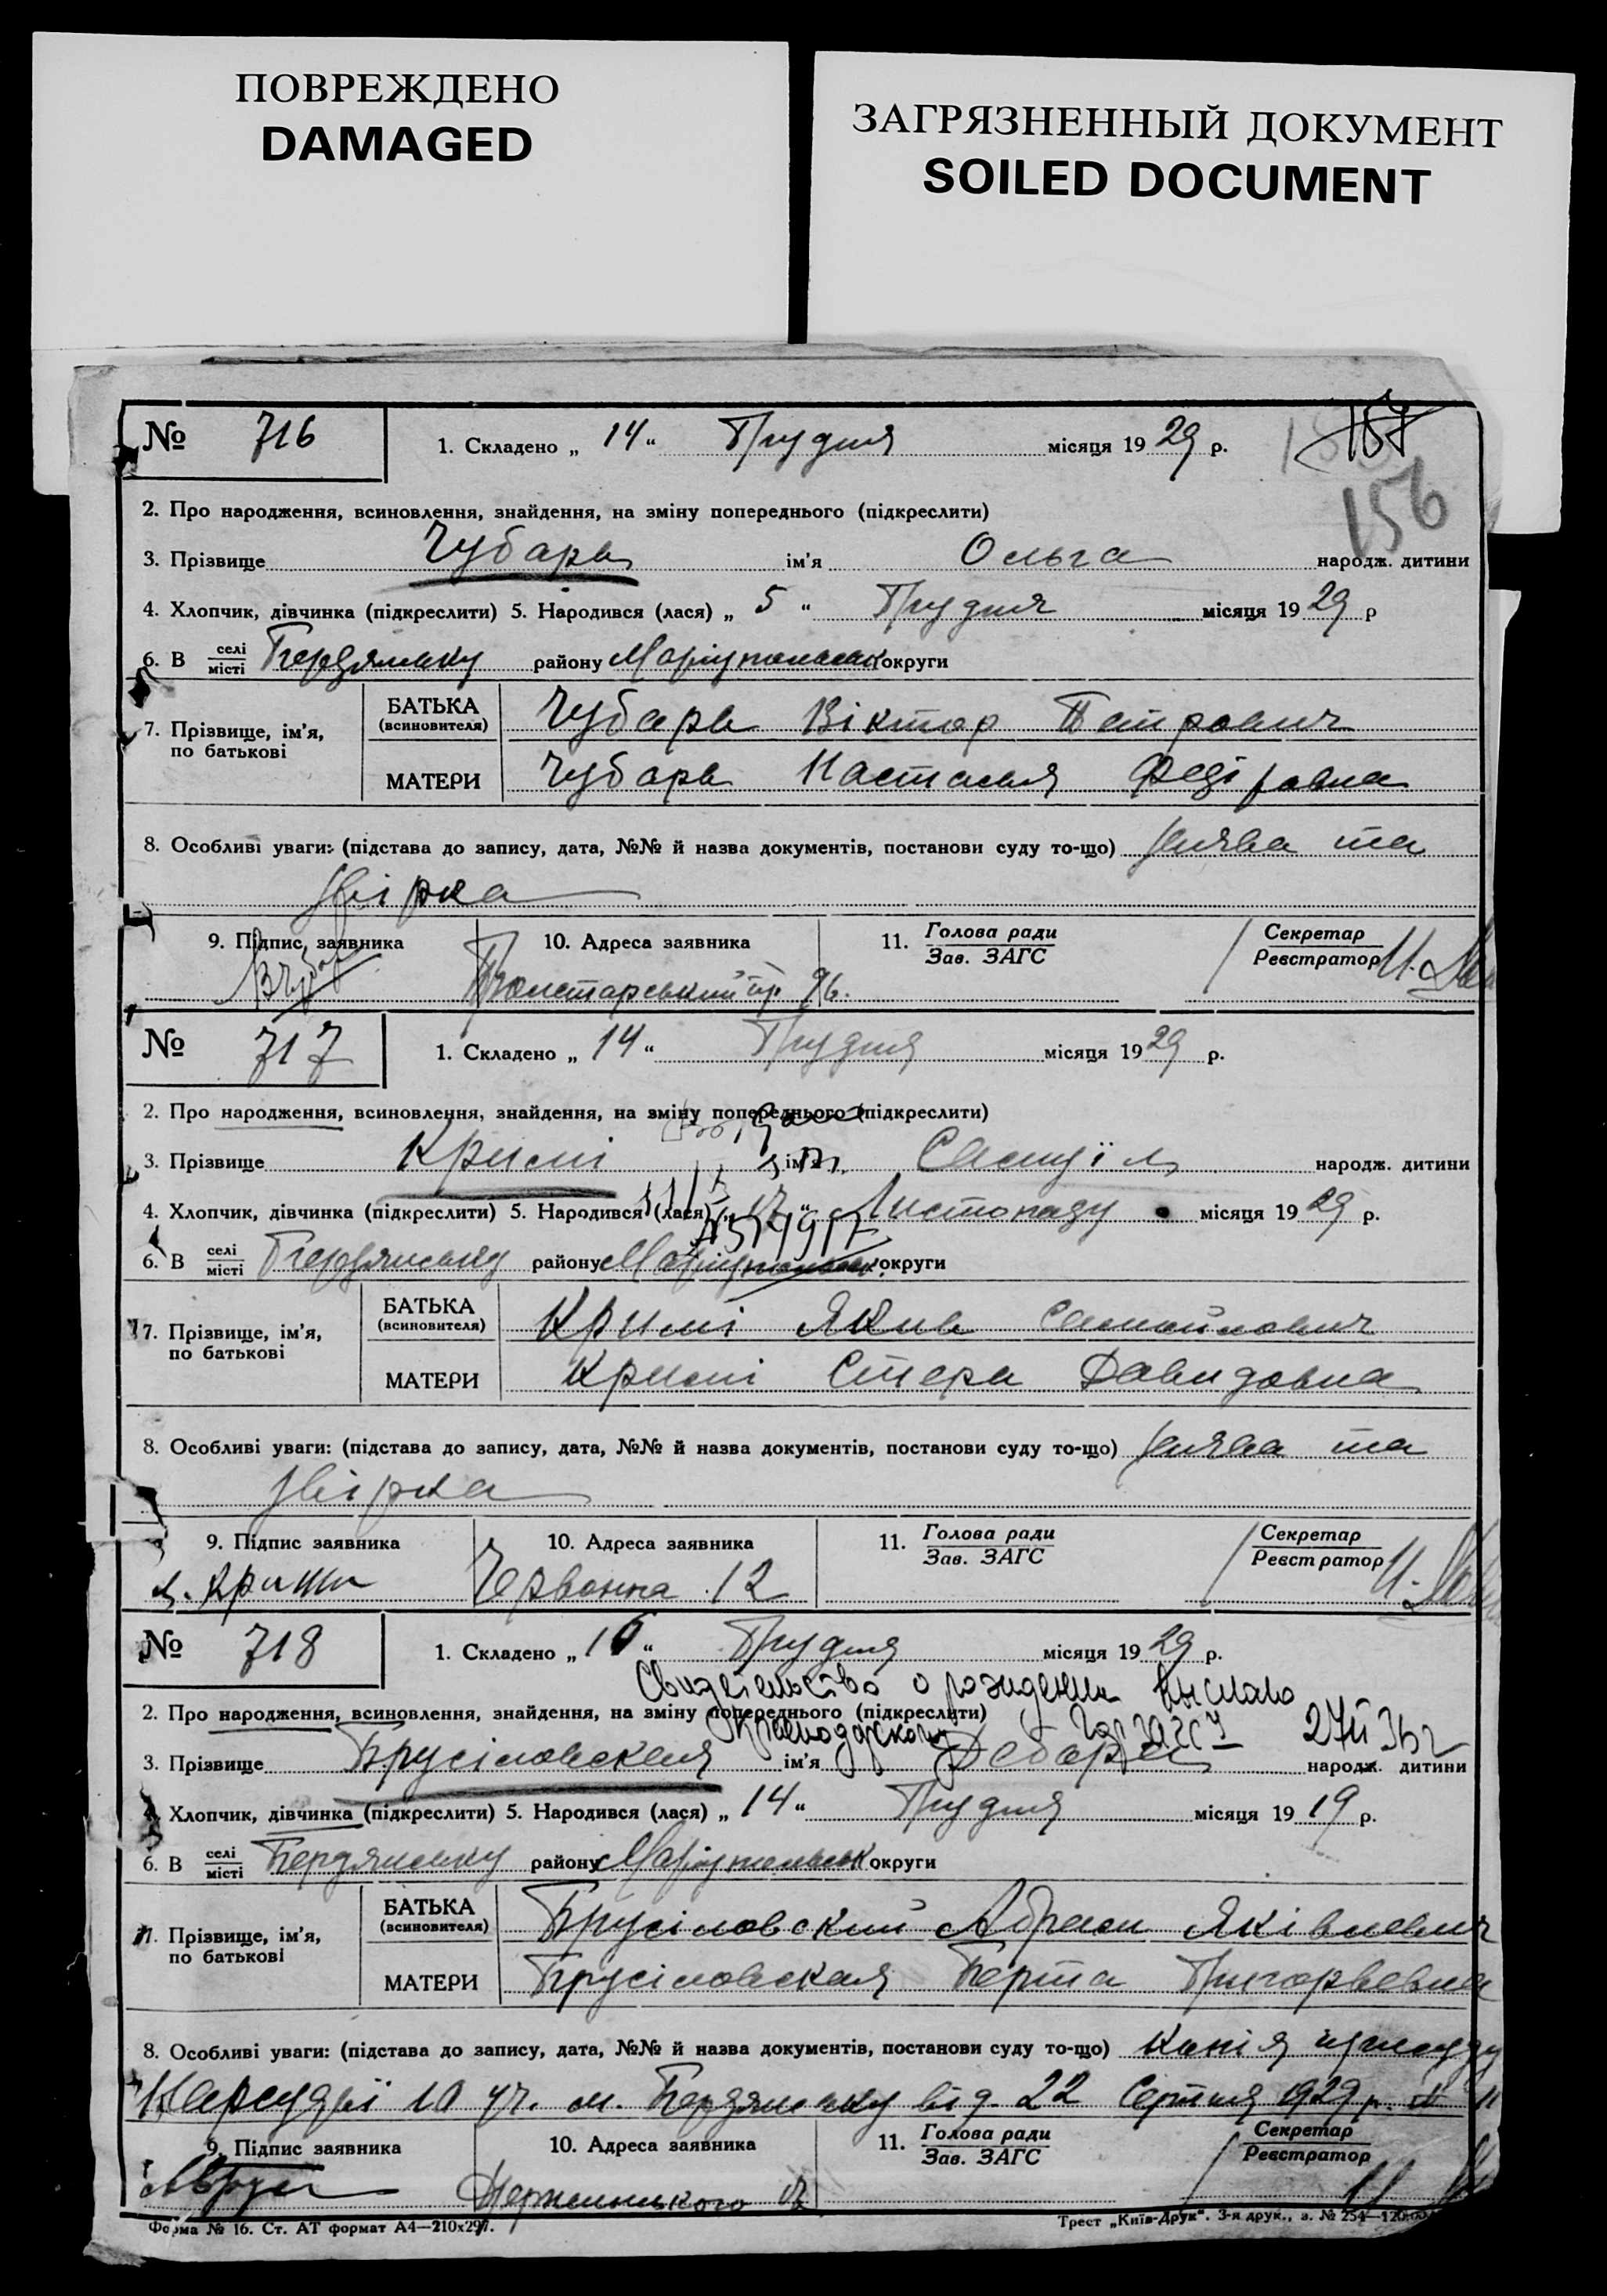 ПОВРЕЖДЕНО
DAMAGED
ЗАГРЯЗНЕННЫЙ ДОКУМЕНТ
SOILED DOCUMENT
157
156
№ 716 1. Складено „ 14 “ Грудня місяця 19 29 р.
2. Про народження, всиновлення, знайдення, на зміну попереднього (підкреслити)
3. Прізвище Чубарь ім'я Ольга народж. дитини
4. Хлопчик, дівчинка (підкреслити) 5. Народився (лася) „ 5 “ Грудня місяця 19 29 р
6. В селі місті Бердянську району Маріупольськ округи
7. Прізвище, ім'я, по батькові
БАТЬКА (всиновителя) Чубарь Віктор Петрович
МАТЕРИ Чубарь Настасья Федіровна
8. Особливі уваги: (підстава до запису, дата, №№ й назва документів, постанови суду то-що) Заява та
звірка
9. Підпис заявника 10. Адреса заявника 11. Голова ради Зав. ЗАГС Секретар Реєстратор
Пролетарський пр. 96.
№ 717 1. Складено „ 14 “ Грудня місяця 19 29 р.
2. Про народження, всиновлення, знайдення, на зміну попереднього (підкреслити)
3. Прізвище Кримі ім'я Самуїл народж. дитини
4. Хлопчик, дівчинка (підкреслити) 5. Народився (лася) „ 17 “ Листопаду місяця 19 29 р.
6. В селі місті Бердянську району Маріупольськ. округи
7. Прізвище, ім'я, по батькові
БАТЬКА (всиновителя) Кримі Яків Самойлович
МАТЕРИ Кримі Стера Давидовна
8. Особливі уваги: (підстава до запису, дата, №№ й назва документів, постанови суду то-що) Заява та
звірка
9. Підпис заявника 10. Адреса заявника 11. Голова ради Зав. ЗАГС Секретар Реєстратор
Червонна 12
№ 718 1. Складено „ 16 “ Грудня місяця 19 29 р.
Свидетельство о рождении выслано
2. Про народження, всиновлення, знайдення, на зміну попереднього (підкреслити)
Краснодарскому горЗАГСУ
3. Прізвище Брусіловская ім'я Дебора народж. дитини
4. Хлопчик, дівчинка (підкреслити) 5. Народився (лася) „ 14 “ Грудня місяця 19 19 р.
6. В селі місті Бердянську району Маріупольськ округи
7. Прізвище, ім'я, по батькові
БАТЬКА (всиновителя) Брусіловский Абрам Яківлевич
МАТЕРИ Брусіловская Берта Григорьевна
8. Особливі уваги: (підстава до запису, дата, №№ й назва документів, постанови суду то-що) Копія
Нарсудді 10 уч. м. Бердянську від 22 Серпня 1929 р. №
9. Підпис заявника 10. Адреса заявника 11. Голова ради Зав. ЗАГС Секретар Реєстратор
Держинського
Форма № 16. Ст. АТ формат А4—210х297.
Трест „Київ-Друк“. 3-я друк., з. № 254—120